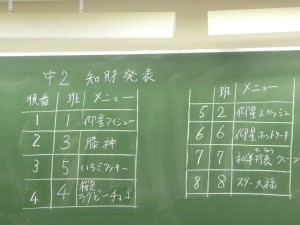 中2 知財発表
順番 班 メニュー
1 1 仰星アイシュー
2 3 勝神
3 5 いちごクッキー
4 4 桜色ラグビーチョコ
班 メニュー
5 2 仰星スカッシュ
6 6 仰星ホットケーキ
7 7 和洋折衷
8 8 スター大福